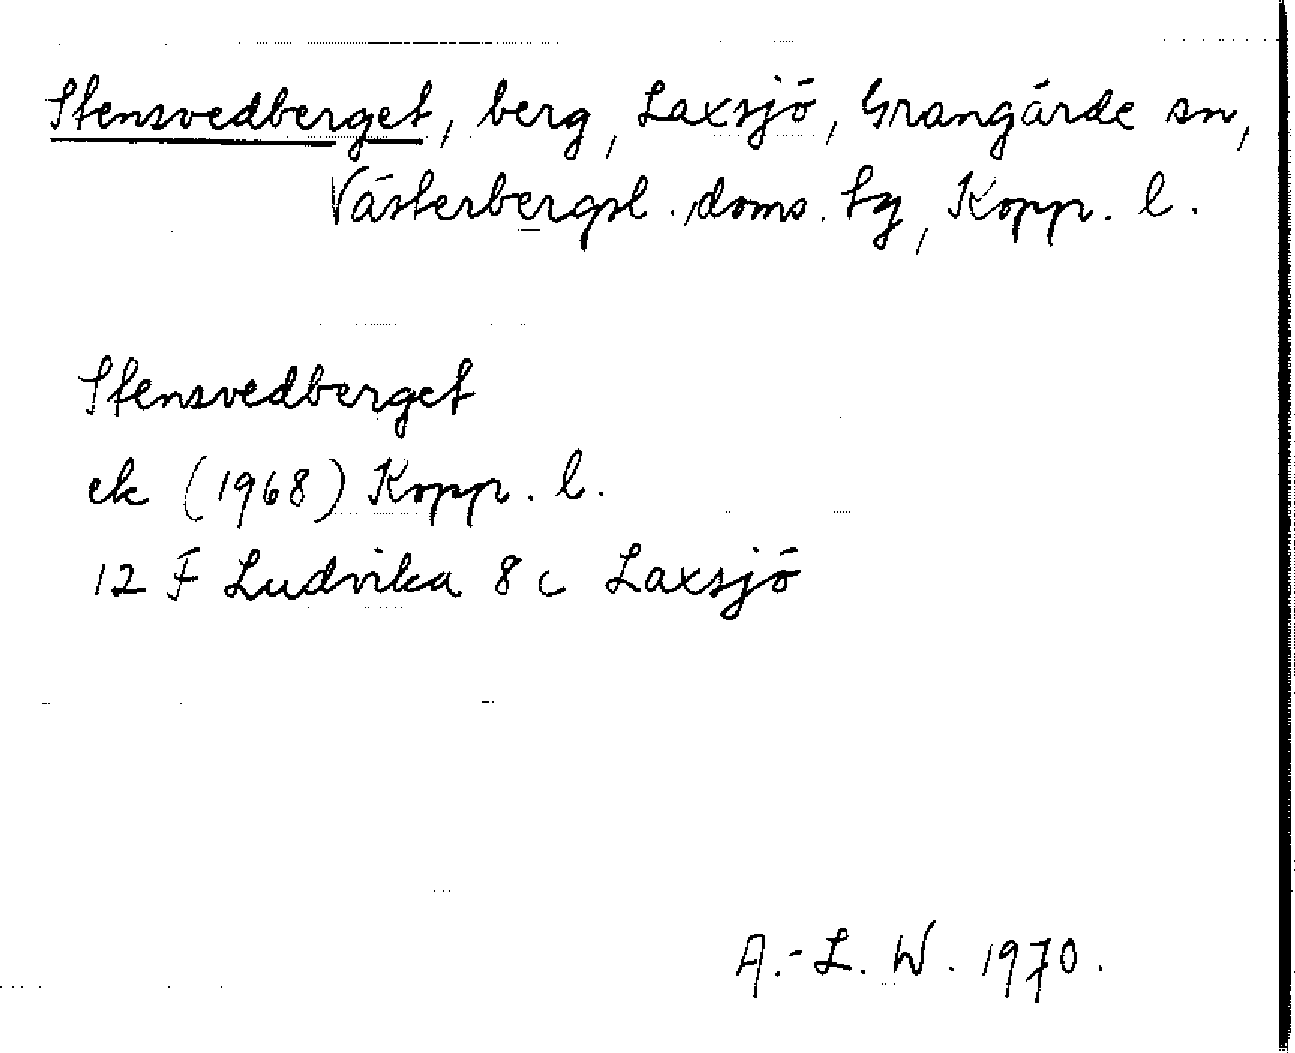 Stensvedberget, berg, Laxsjö, Grangärde sn,
Västerbergsl. doms. tg, Kopp. l.
Stensvedberget
ek (1968) Kopp. l.
12 F Ludvika 8 c Laxsjö
A.-L. W. 1970.